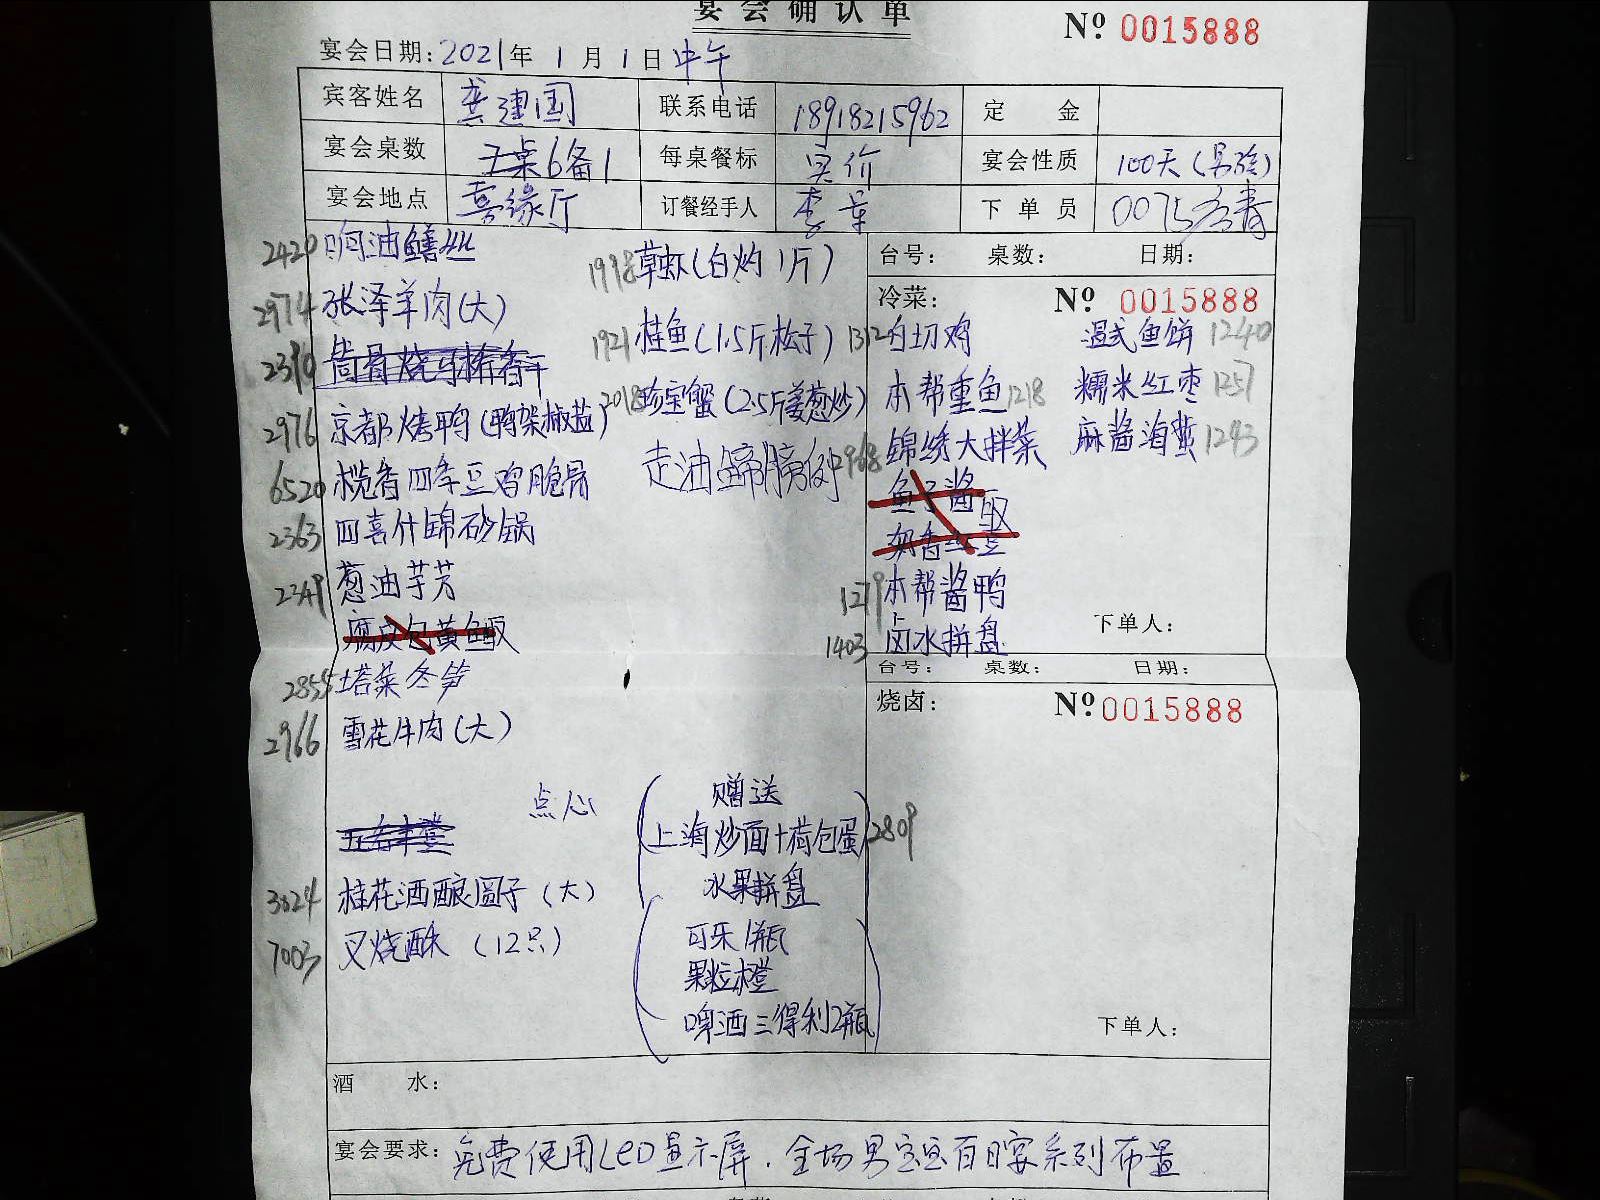 宴会确认单
Nº 0015888
宴会日期:2021年 1月 1日 中午
宾客姓名 龚建国 联系电话 18918215962 定 金
宴会桌数 6备1 每桌餐标 实价 宴会性质 100天(男孩)
宴会地点 喜缘厅 订餐经手人 下单员 0075
2420 响油鳝丝
2974 张泽羊肉(大)
2390
2976 京都烤鸭(鸭架椒盐)
6520 榄香四季豆鸡脆骨
2363 四喜什锦砂锅
2349 葱油芋艿
腐皮包黄鱼
2855 塔菜冬笋
2966 雪花牛肉(大)
点心
3024 桂花酒酿圆子(大)
7003 叉烧酥(12只)
1998 草虾(白灼1斤)
1921 桂鱼(1.5斤松子)
2018 珍宝蟹(2.5斤姜葱炒)
走油蹄膀 2968
赠送
上海炒面+荷包蛋 2809
水果拼盘
可乐1瓶
果粒橙
啤酒三得利2瓶
台号: 桌数: 日期:
冷菜: Nº 0015888
1312 白切鸡 温式鱼饼 1240
本帮熏鱼 1218 糯米红枣 1257
锦绣大拌菜 麻酱海蜇 1243
鱼子酱
奶香
1219 本帮酱鸭
下单人:
1403 卤水拼盘
台号: 桌数: 日期:
烧卤: Nº 0015888
下单人:
酒 水:
宴会要求: 免费使用LED显示屏.全场男宝宝百日宴系列布置